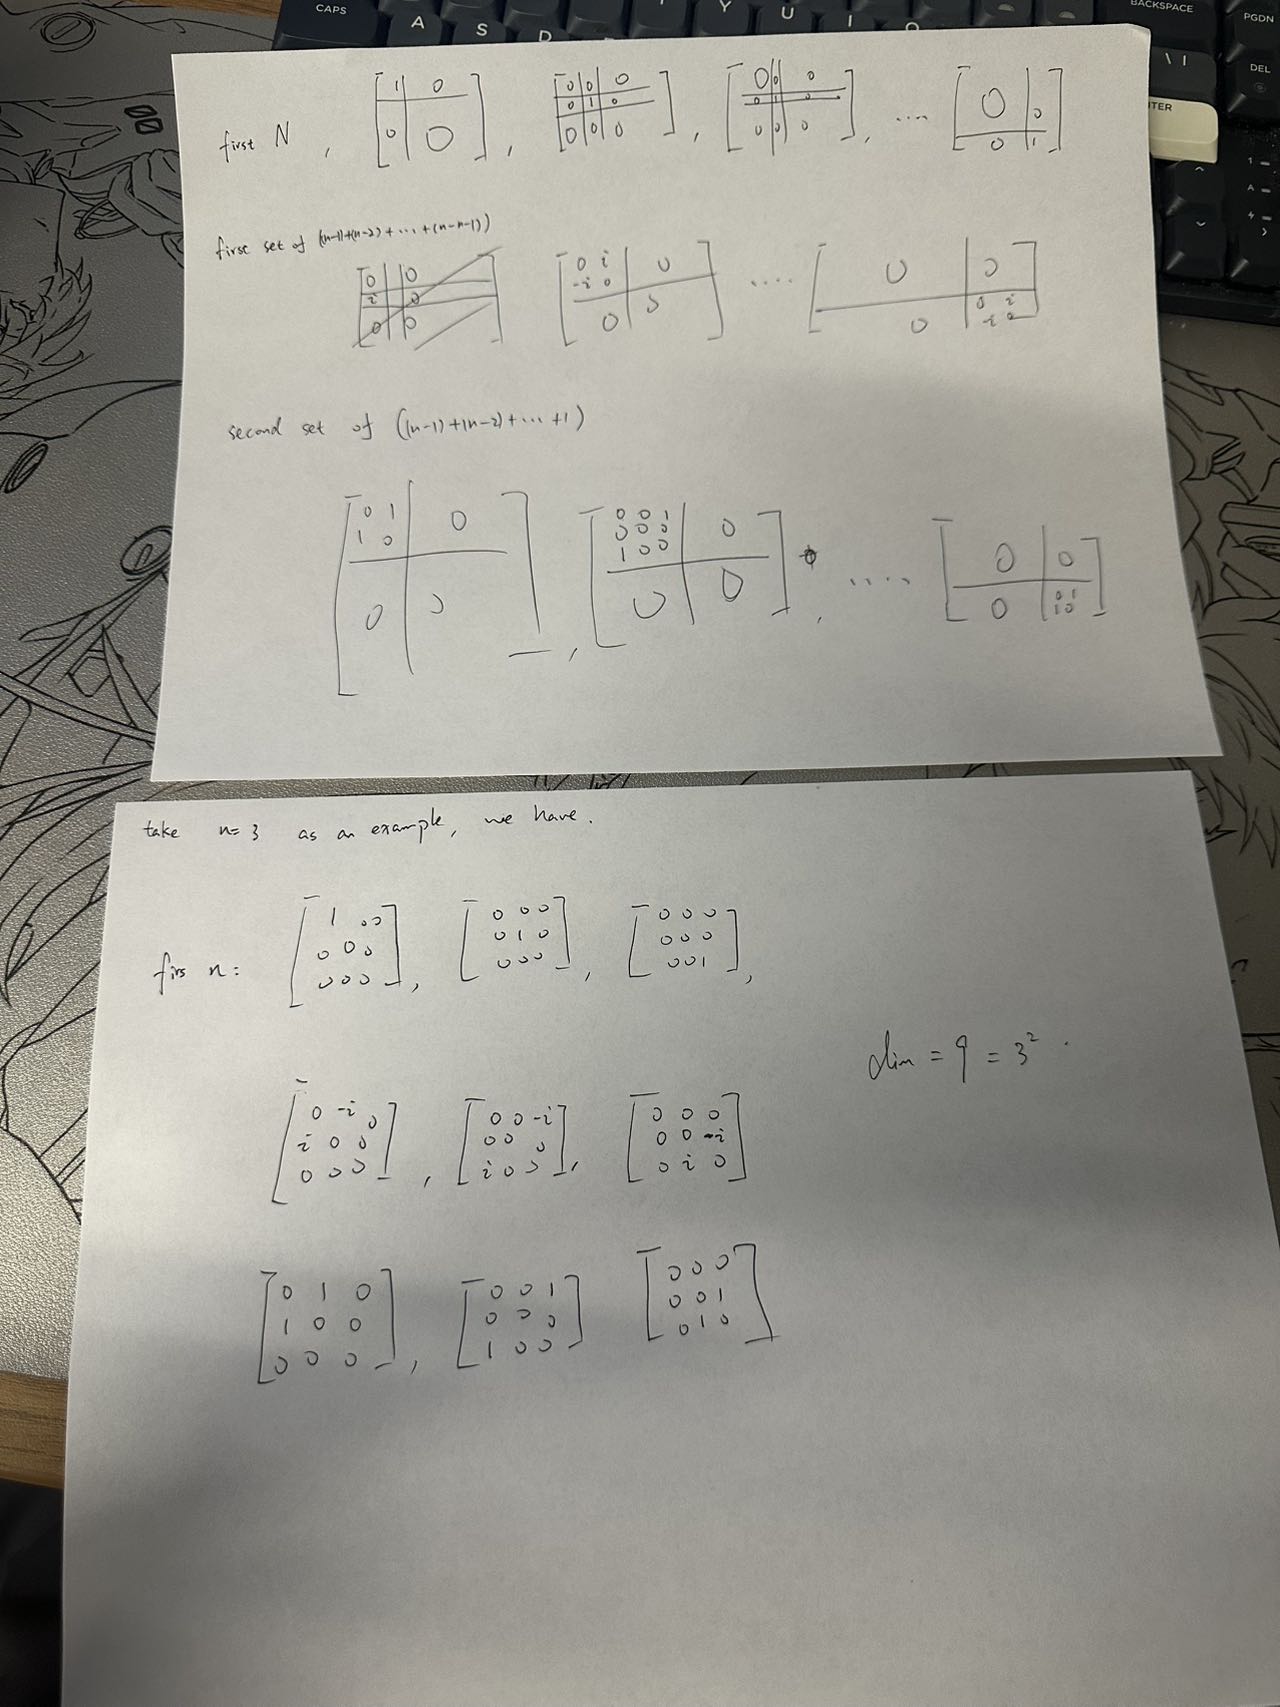 CAPS A S D Y U I O BACKSPACE PGDN
\ | DEL
TER
first N , [ 1 | 0 ; 0 | 0 ] , [ 0 | 0 | 0 ; 0 | 1 | 0 ; 0 | 0 | 0 ] , [ 0 | 0 | 0 ; 0 | 1 | 0 ; 0 | 0 | 0 ] , .... [ 0 | 0 ; 0 | 1 ]
first set of ((n-1)+(n-2)+...+(n-n-1))
[ 0 i | 0 ; -i 0 | ; 0 | 0 ] .... [ 0 | 0 ; 0 | 0 i ; | -i 0 ]
second set of ((n-1)+(n-2)+...+1)
[ 0 1 | 0 ; 1 0 | ; 0 | 0 ] , [ 0 0 1 | 0 ; 0 0 0 | ; 1 0 0 | ; 0 | 0 ] , .... [ 0 | 0 ; 0 | 0 1 ; | 1 0 ]
take n=3 as an example, we have.
firs n: [ 1 0 0 ; 0 0 0 ; 0 0 0 ] , [ 0 0 0 ; 0 1 0 ; 0 0 0 ] , [ 0 0 0 ; 0 0 0 ; 0 0 1 ] ,
dim = 9 = 3² .
[ 0 -i 0 ; i 0 0 ; 0 0 0 ] , [ 0 0 -i ; 0 0 0 ; i 0 0 ] , [ 0 0 0 ; 0 0 -i ; 0 i 0 ]
[ 0 1 0 ; 1 0 0 ; 0 0 0 ] , [ 0 0 1 ; 0 0 0 ; 1 0 0 ] [ 0 0 0 ; 0 0 1 ; 0 1 0 ]